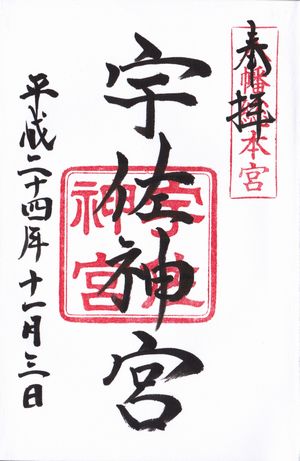 奉拝
八幡総本宮
宇佐神宮
宇佐神宮
平成二十四年十一月三日